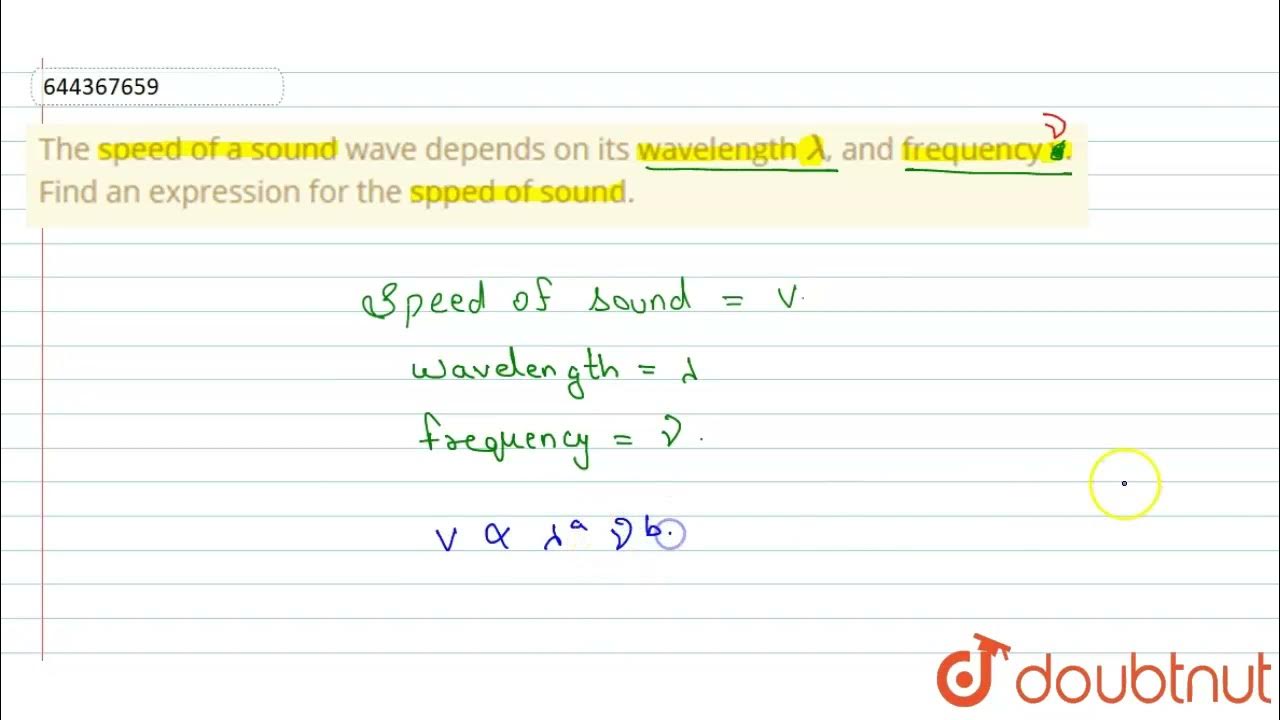 644367659
The speed of a sound wave depends on its wavelength λ, and frequency ν.
Find an expression for the spped of sound.
Speed of sound = v.
wavelength = λ
frequency = ν.
v ∝ λᵃ νᵇ.
doubtnut